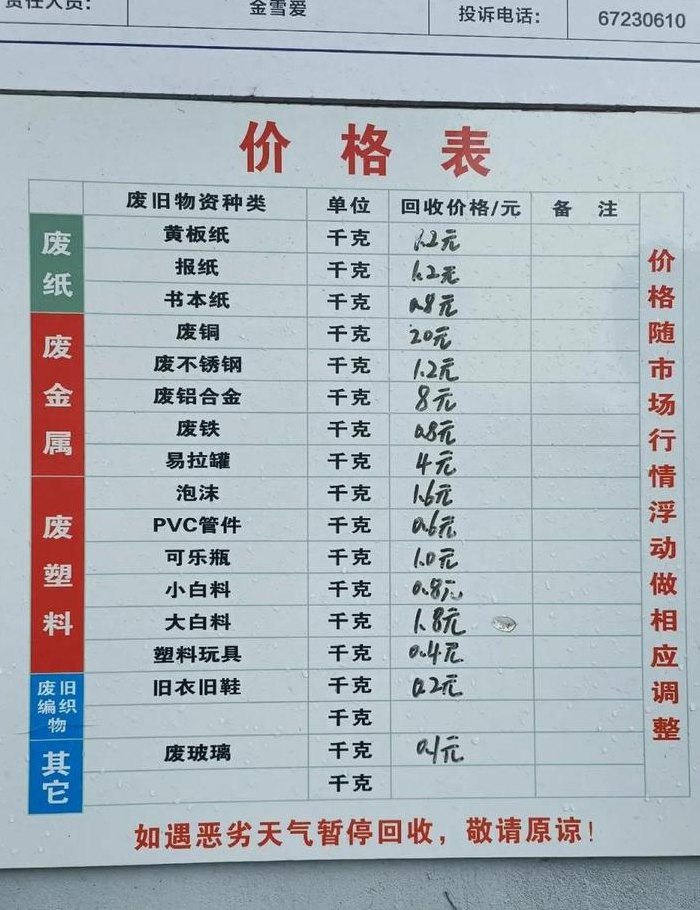 责任人员： 金雪爱 投诉电话： 67230610
价格表
废旧物资种类 单位 回收价格/元 备注
废纸
黄板纸 千克 1.2元
报纸 千克 1.2元
书本纸 千克 0.8元
废金属
废铜 千克 20元
废不锈钢 千克 1.2元
废铝合金 千克 8元
废铁 千克 0.8元
易拉罐 千克 4元
废塑料
泡沫 千克 1.6元
PVC管件 千克 0.6元
可乐瓶 千克 1.0元
小白料 千克 0.8元
大白料 千克 1.8元
塑料玩具 千克 0.4元
废旧编织物
旧衣旧鞋 千克 0.2元
千克
其它
废玻璃 千克 0.1元
千克
价格随市场行情浮动做相应调整
如遇恶劣天气暂停回收，敬请原谅！